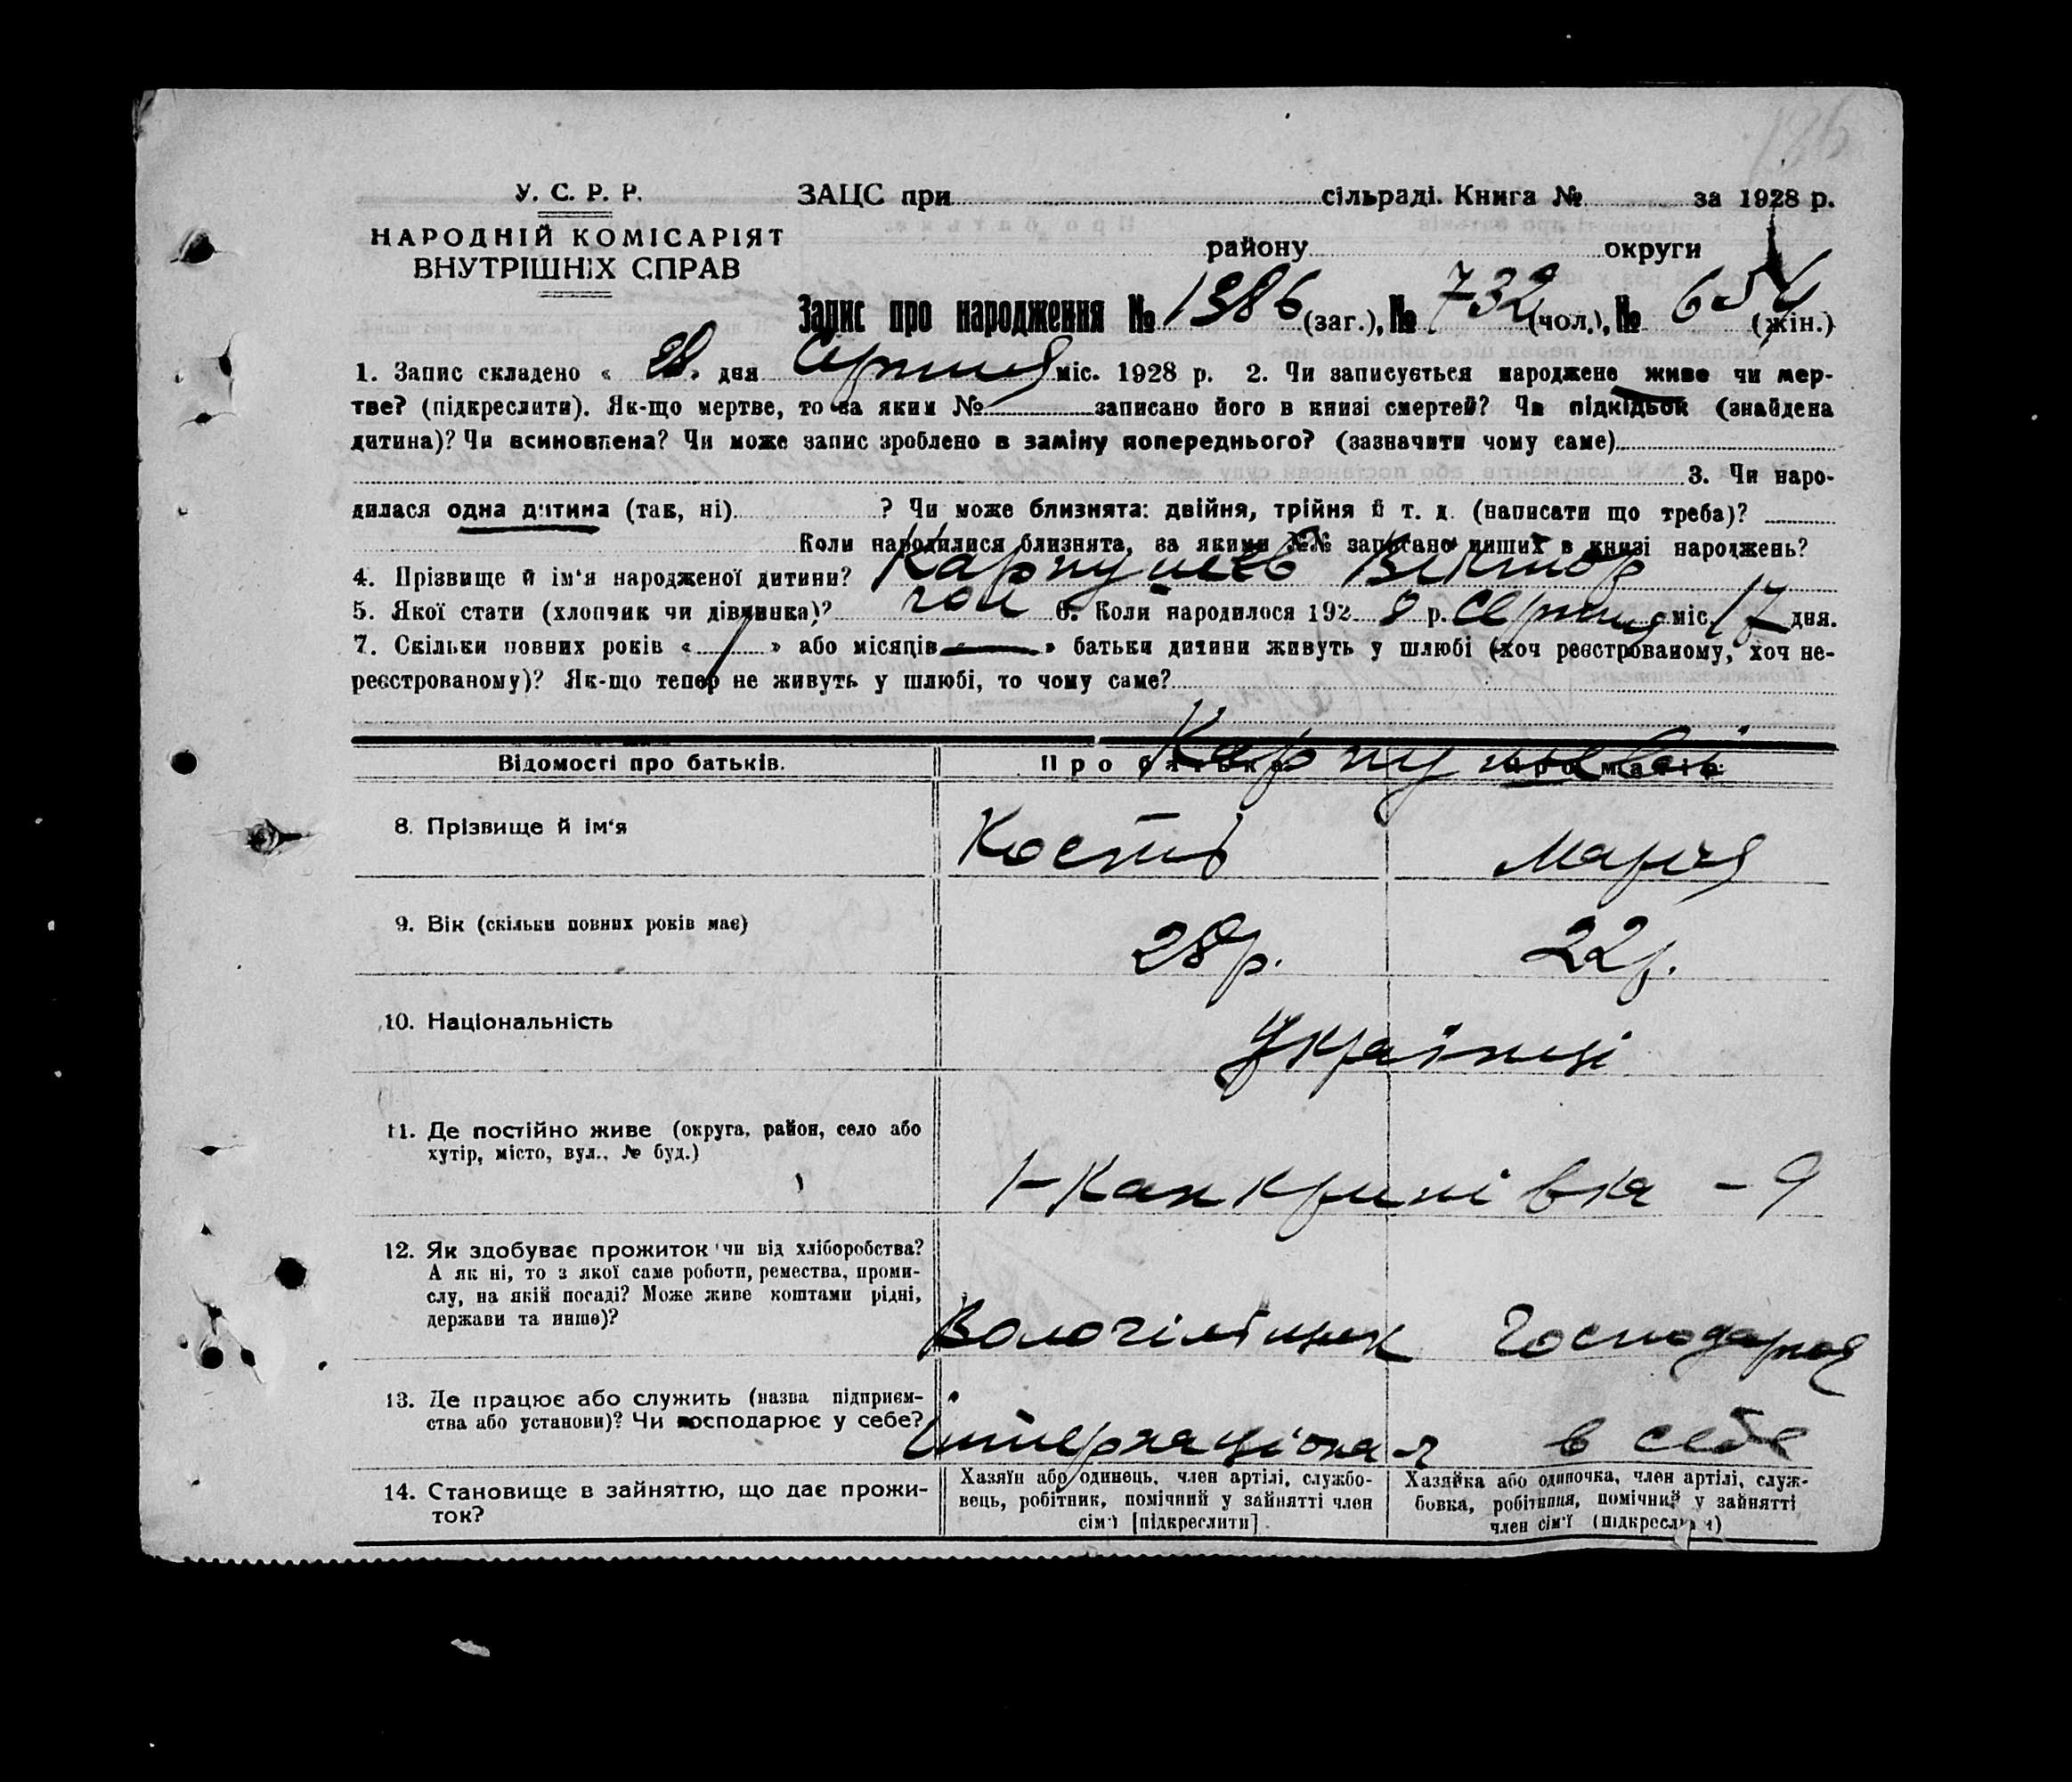 186
У. С. Р. Р.
НАРОДНІЙ КОМІСАРІЯТ
ВНУТРІШНІХ СПРАВ
ЗАЦС при сільраді. Книга № за 1928 р.
району округи
Запис про народження № 1386 (заг.), № 732 (чол.), № 654 (жін.)
1. Запис складено « 28 » дня Серпня міс. 1928 р. 2. Чи записується народжене живе чи мер-
тве? (підкреслити). Як-що мертве, то за яким № записано його в книзі смертей? Чи підкідьок (знайдена
дитина)? Чи всиновлена? Чи може запис зроблено в заміну попереднього? (зазначити чому саме)
3. Чи наро-
дилася одна дитина (так, ні) ? Чи може близнята: двійня, трійня й т. д. (написати що треба)?
Коли народилися близнята, за якими №№ записано инших в книзі народжень?
4. Прізвище й ім‘я народженої дитини? Карпушев Виктор
5. Якої стати (хлопчик чи дівчинка)? чол 6. Коли народилося 192 8 р. Серпня міс. 17 дня.
7. Скільки повних років « 1 » або місяців « — » батьки дитини живуть у шлюбі (хоч реєстрованому, хоч не-
реєстрованому)? Як-що тепер не живуть у шлюбі, то чому саме?
Відомості про батьків. Про батька Про матір
8. Прізвище й ім‘я Костя Мария
9. Вік (скільки повних років має) 28 р. 22 р.
10. Національність Українці
11. Де постійно живе (округа, район, село або
хутір, місто, вул., № буд.) 1-Канкринівка - 9
12. Як здобуває прожиток чи від хліборобства?
А як ні, то з якої саме роботи, ремества, проми-
слу, на якій посаді? Може живе коштами рідні,
держави та инше)? Господарка
13. Де працює або служить (назва підприєм-
ства або установи)? Чи господарює у себе? Інтернаціонал в себе
14. Становище в зайняттю, що дає прожи-
ток?
Хазяїн або одинець, член артілі, службо-
вець, робітник, помічний у зайнятті член
сім‘ї [підкреслити].
Хазяйка або одиночка, член артілі, служ-
бовка, робітниця, помічний у зайнятті
член сім‘ї (підкреслити)